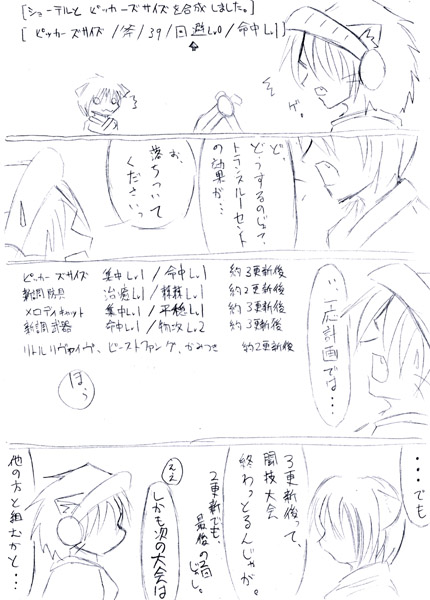 [ショーテルとピッカーズサイズを合成しました。]
[ピッカーズサイズ/斧/39/回避Lv0/命中Lv1]
ど、
どうするのじゃ?
トランスルーセント
の効果が…
お、
落ちついて
くださいっ
ピッカーズサイズ 集中Lv1/命中Lv1 約3更新後
新調防具 治癒Lv1/ Lv1 約2更新後
メロディキャット 集中Lv1/平穏Lv1 約3更新後
新調武器 命中Lv1/物攻Lv2 約3更新後
リトルリヴァイヴ、ビーストファング、かみつき 約2更新後
い、一応計画では…
ほう
…でも
3更新後って、
闘技大会
終わっとるんじゃが。
2更新でも、
最後の
ええ
しかも次の大会は
他の方と組むかと…